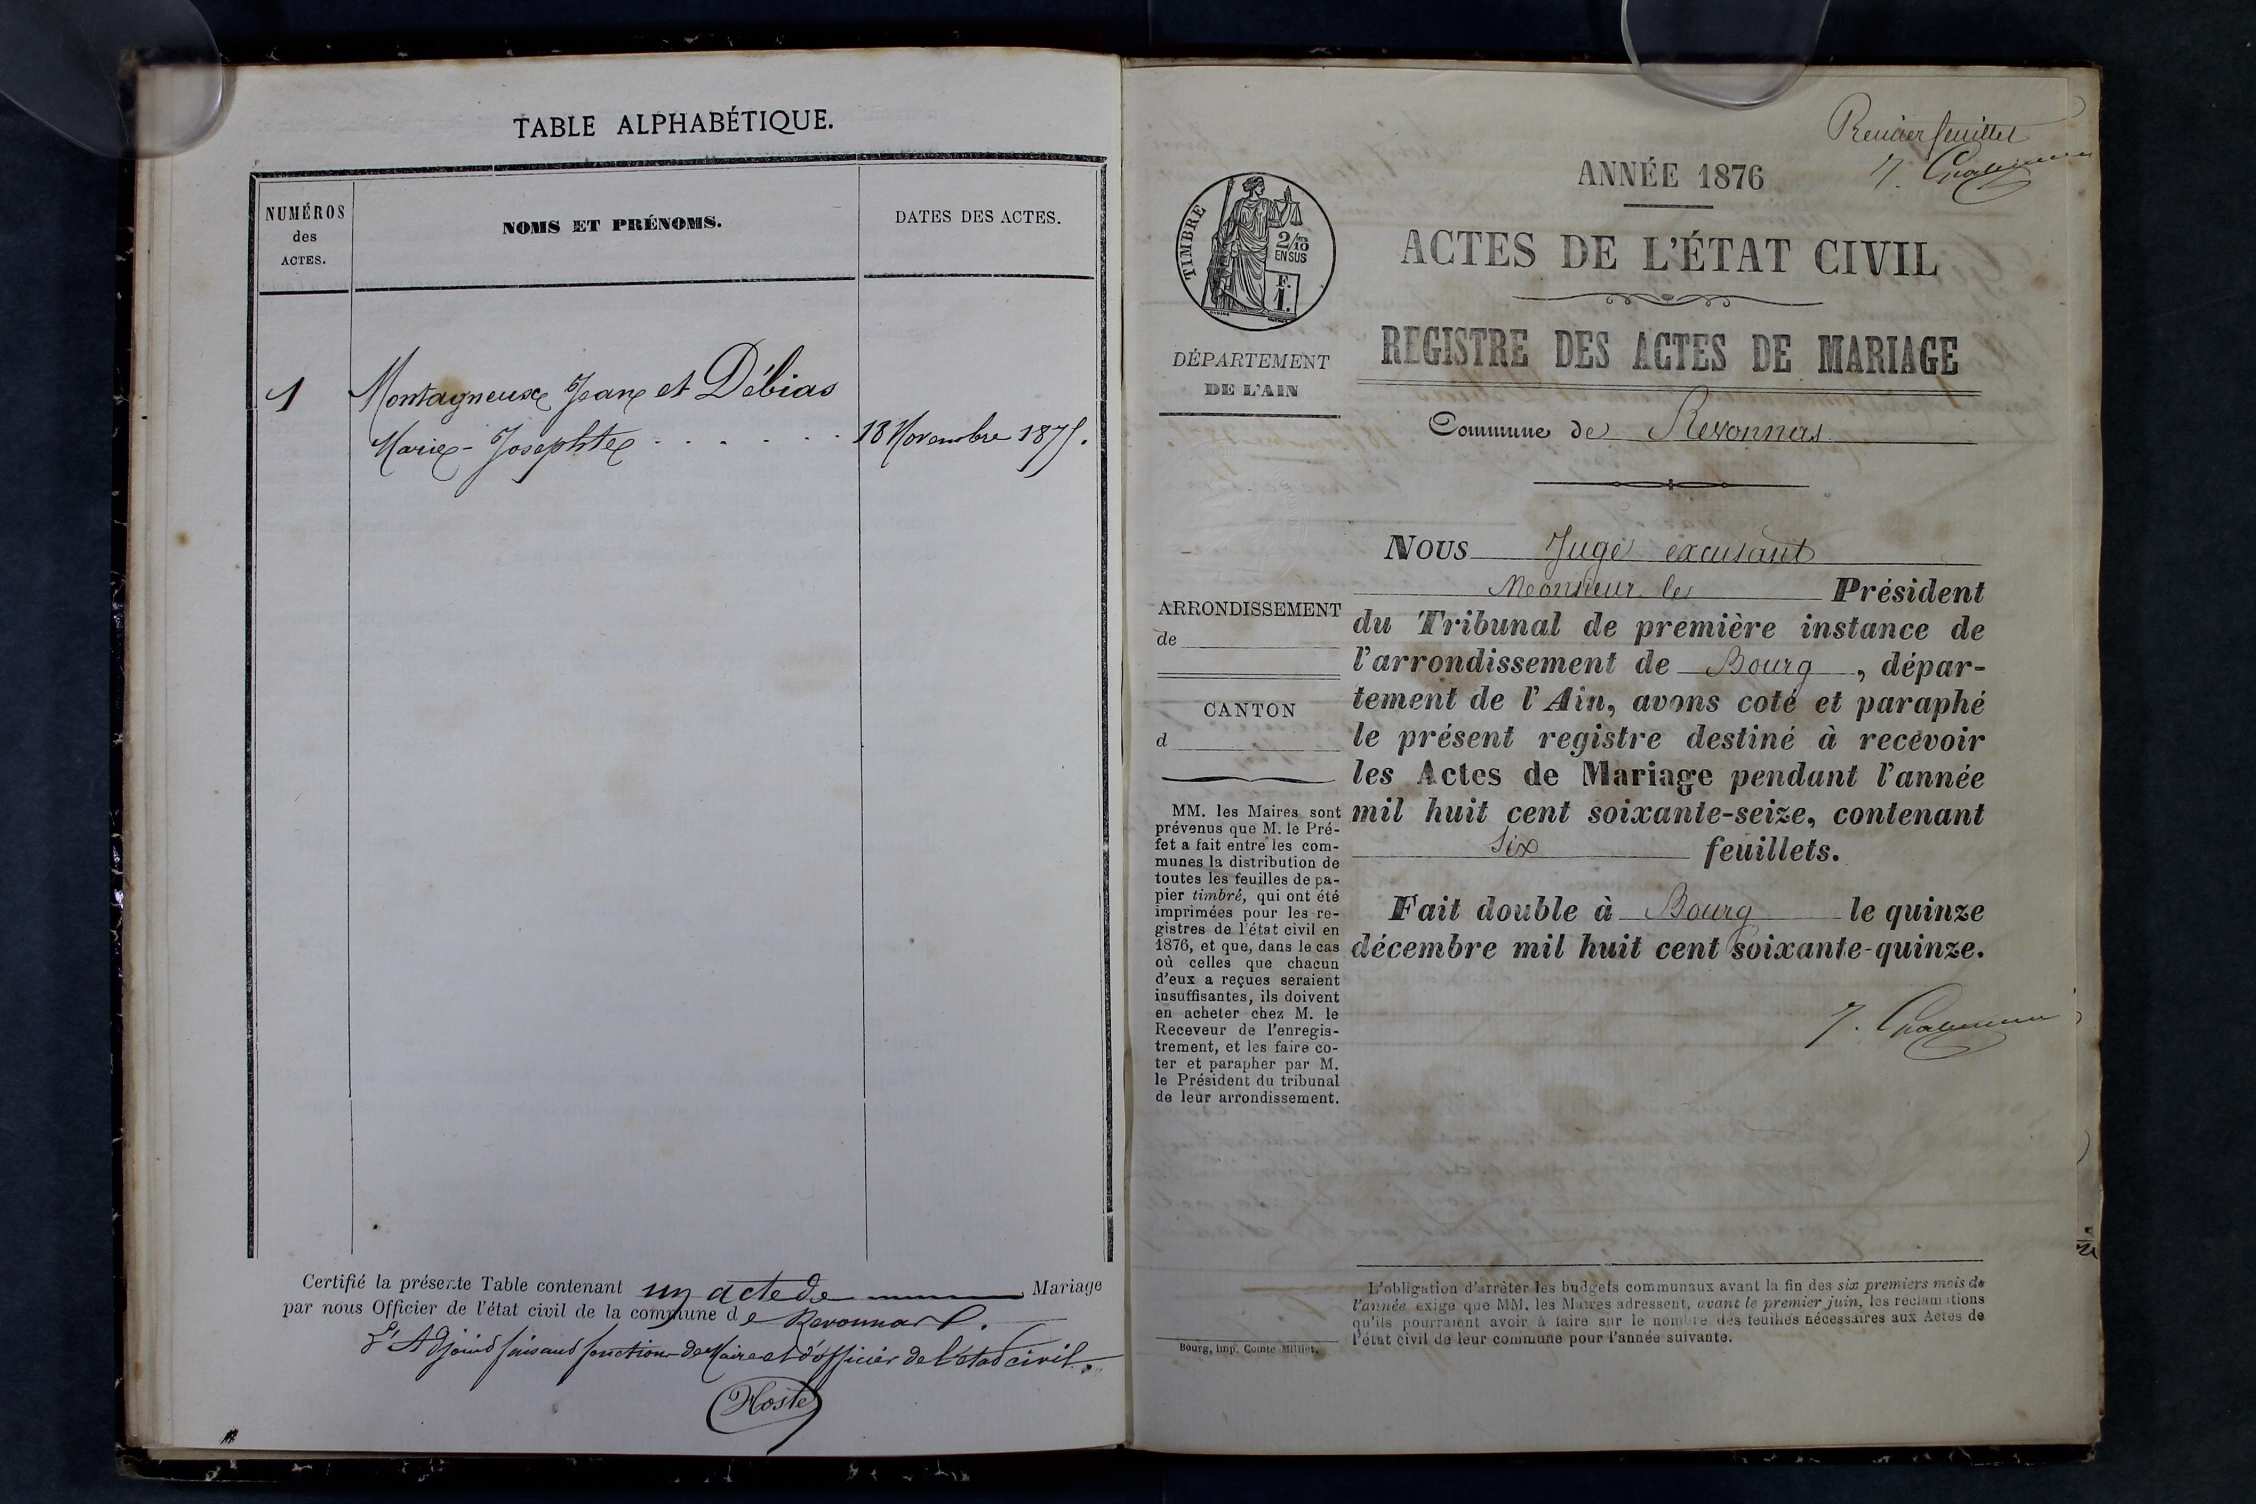 TABLE ALPHABÉTIQUE.
NUMÉROS
des
ACTES.
NOMS ET PRÉNOMS.
DATES DES ACTES.
1 Montagneux Jean et Débias
Marie-Josephte . . . . . . 18 Novembre 1875.
Certifié la présente Table contenant un acte de Mariage
par nous Officier de l'état civil de la commune de Revonnas.
L'Adjoint faisant fonction de Maire et d'officier de l'état civil.
Hoste
Premier feuillet
ANNÉE 1876
TIMBRE
2/10
EN SUS
F.
1.
ACTES DE L'ÉTAT CIVIL
REGISTRE DES ACTES DE MARIAGE
DÉPARTEMENT
DE L'AIN
Commune de Revonnas
NOUS Juge excusant
Monsieur le Président
du Tribunal de première instance de
l'arrondissement de Bourg, dépar-
tement de l'Ain, avons coté et paraphé
le présent registre destiné à recevoir
les Actes de Mariage pendant l'année
mil huit cent soixante-seize, contenant
six feuillets.
Fait double à Bourg le quinze
décembre mil huit cent soixante-quinze.
ARRONDISSEMENT
de
CANTON
d
MM. les Maires sont
prévenus que M. le Pré-
fet a fait entre les com-
munes la distribution de
toutes les feuilles de pa-
pier timbré, qui ont été
imprimées pour les re-
gistres de l'état civil en
1876, et que, dans le cas
où celles que chacun
d'eux a reçues seraient
insuffisantes, ils doivent
en acheter chez M. le
Receveur de l'enregis-
trement, et les faire co-
ter et parapher par M.
le Président du tribunal
de leur arrondissement.
L'obligation d'arrêter les budgets communaux avant la fin des six premiers mois de
l'année exige que MM. les Maires adressent, avant le premier juin, les réclamations
qu'ils pourraient avoir à faire sur le nombre des feuilles nécessaires aux Actes de
l'état civil de leur commune pour l'année suivante.
Bourg, imp. Comte-Milliet.